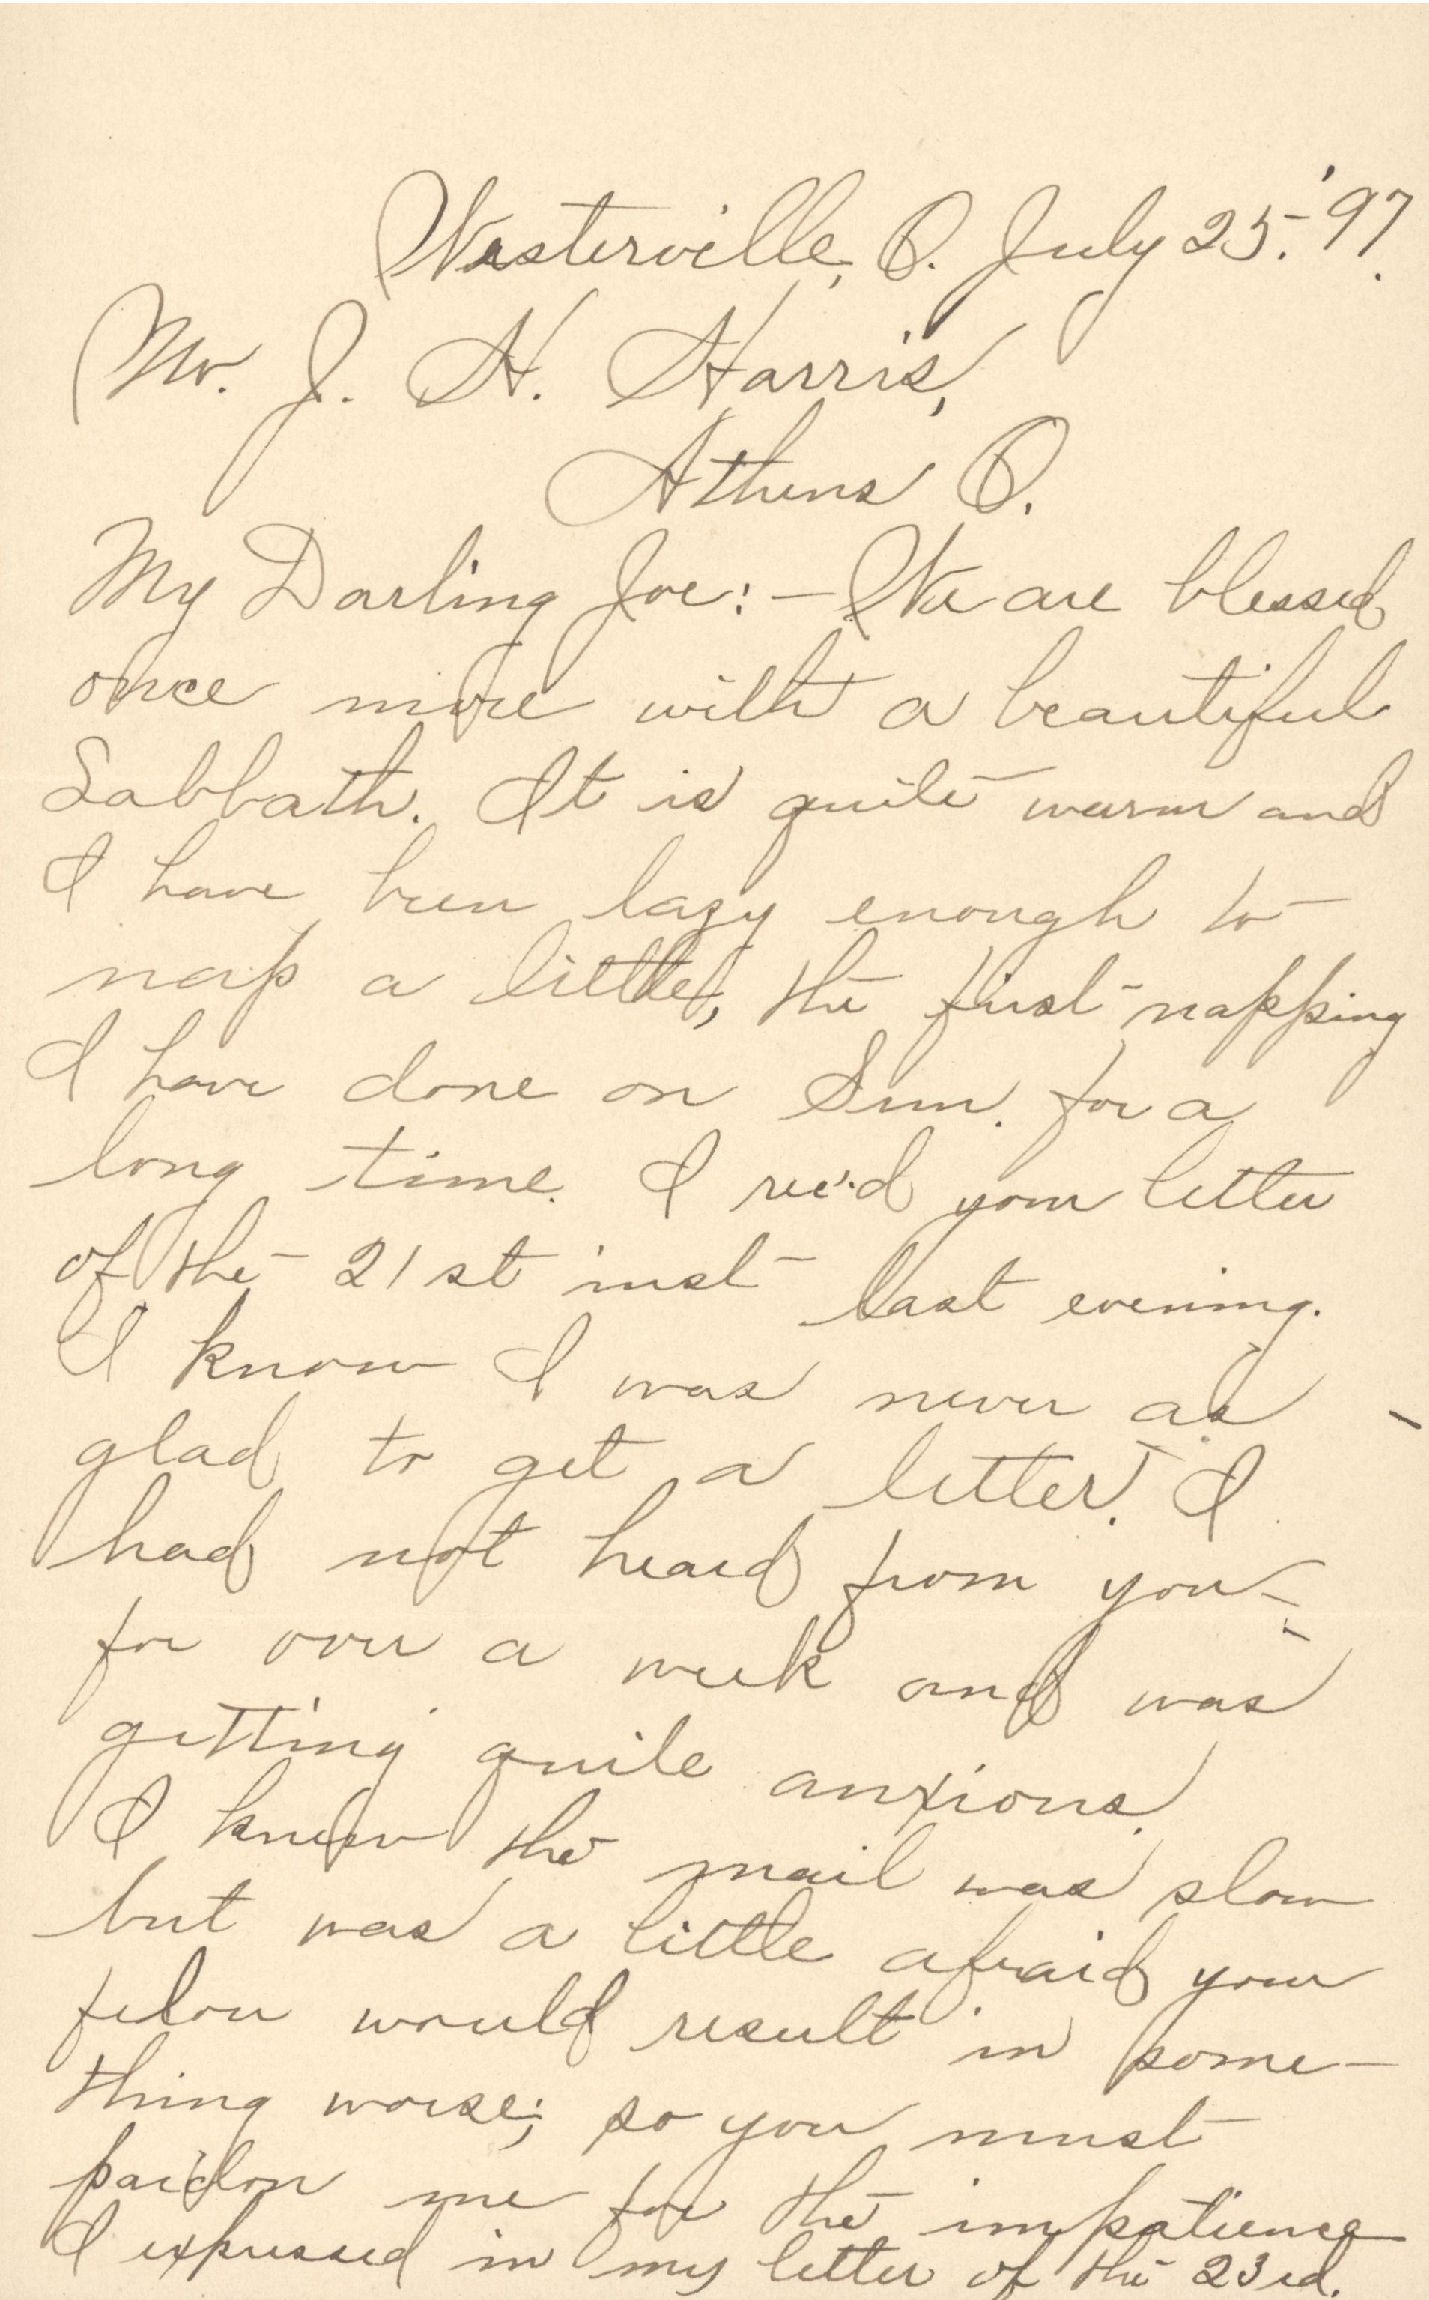 Westerville, O. July 25. '97.
Mr. J. H. Harris,
Athens O.
My Darling Joe:- We are blessed
once more with a beautiful
Sabbath. It is quite warm and
I have been lazy enough to
nap a little, the first napping
I have done on Sun. for a
long time. I rec'd your letter
of the 21st inst last evening.
I know I was never as
glad to get a letter. I
had not heard from you
for over a week and was
getting quite anxious.
I knew the mail was slow
but was a little afraid your
felon would result in some-
thing worse; so you must
pardon me for the impatience
I expressed in my letter of the 23rd.